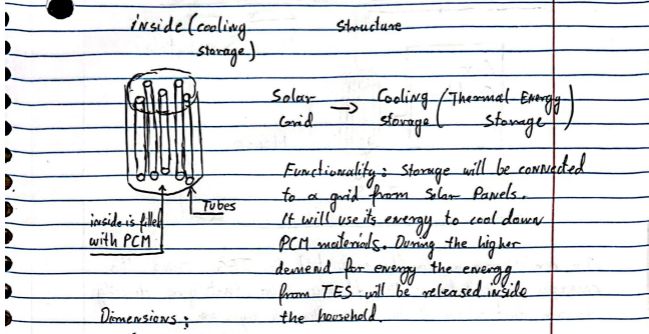 inside (cooling storage)
Structure
Solar Grid → Cooling storage (Thermal Energy Storage)
Tubes
inside is filled with PCM
Functionality: Storage will be connected
to a grid from Solar Panels.
It will use its energy to cool down
PCM materials. During the higher
demend for energy the energy
from TES will be released inside
the household.
Dimensions: